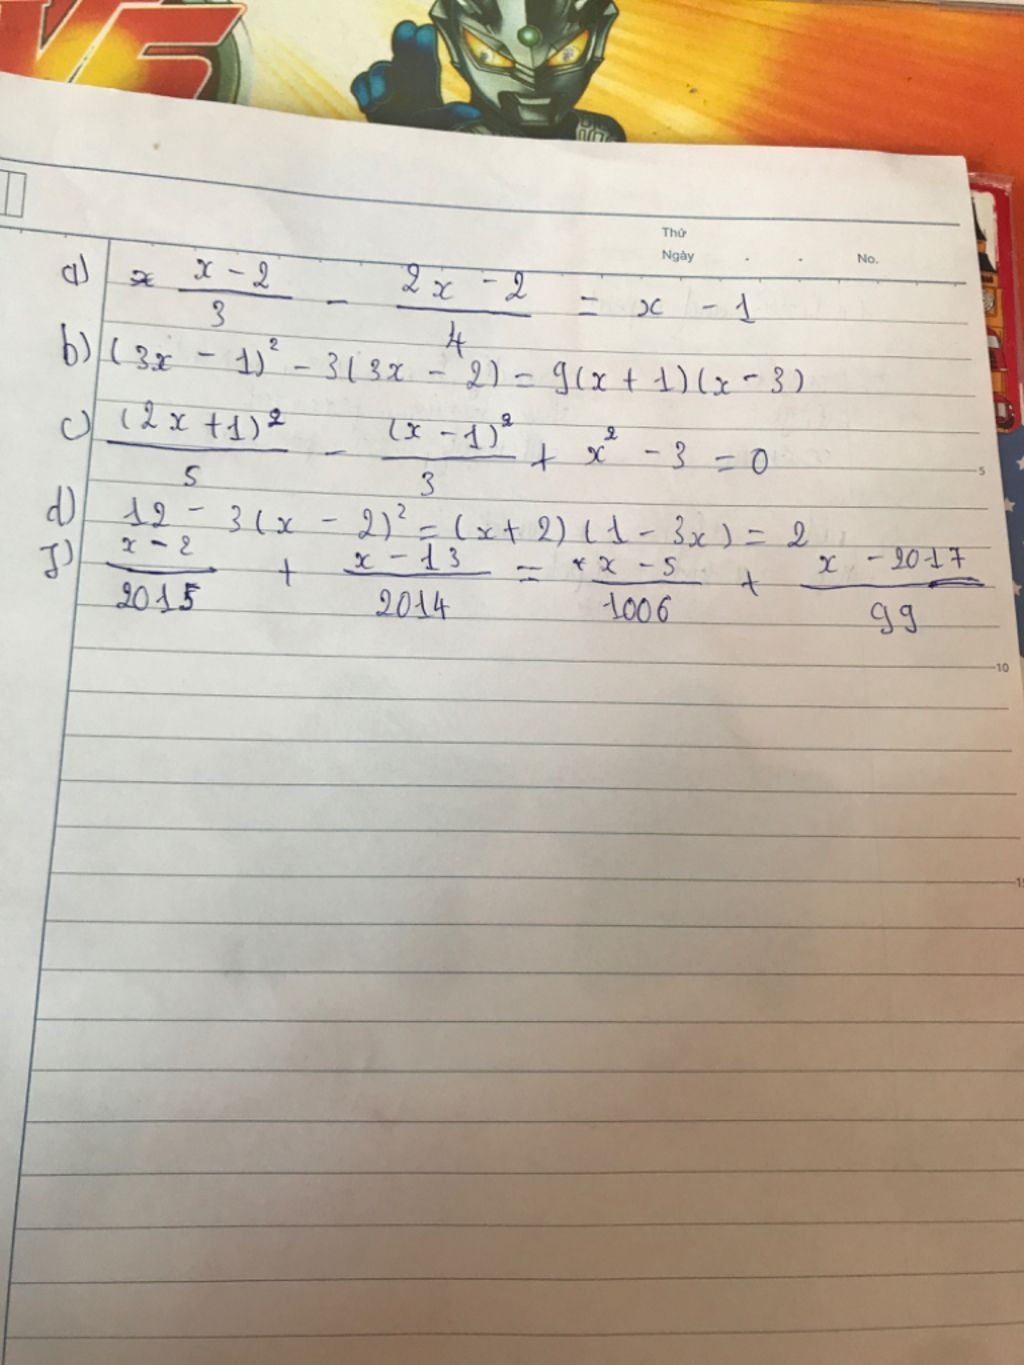 VS
Thứ
Ngày . . No.
a) x-2/3 - 2x-2/4 = x - 1
b) (3x - 1)² - 3(3x - 2) = 9(x + 1)(x - 3)
c) (2x+1)²/5 - (x-1)²/3 + x² - 3 = 0
5
d) 12 - 3(x - 2)² = (x + 2)(1 - 3x) = 2
J) x-2/2015 + x-13/2014 = x-5/1006 + x-2017/99
10